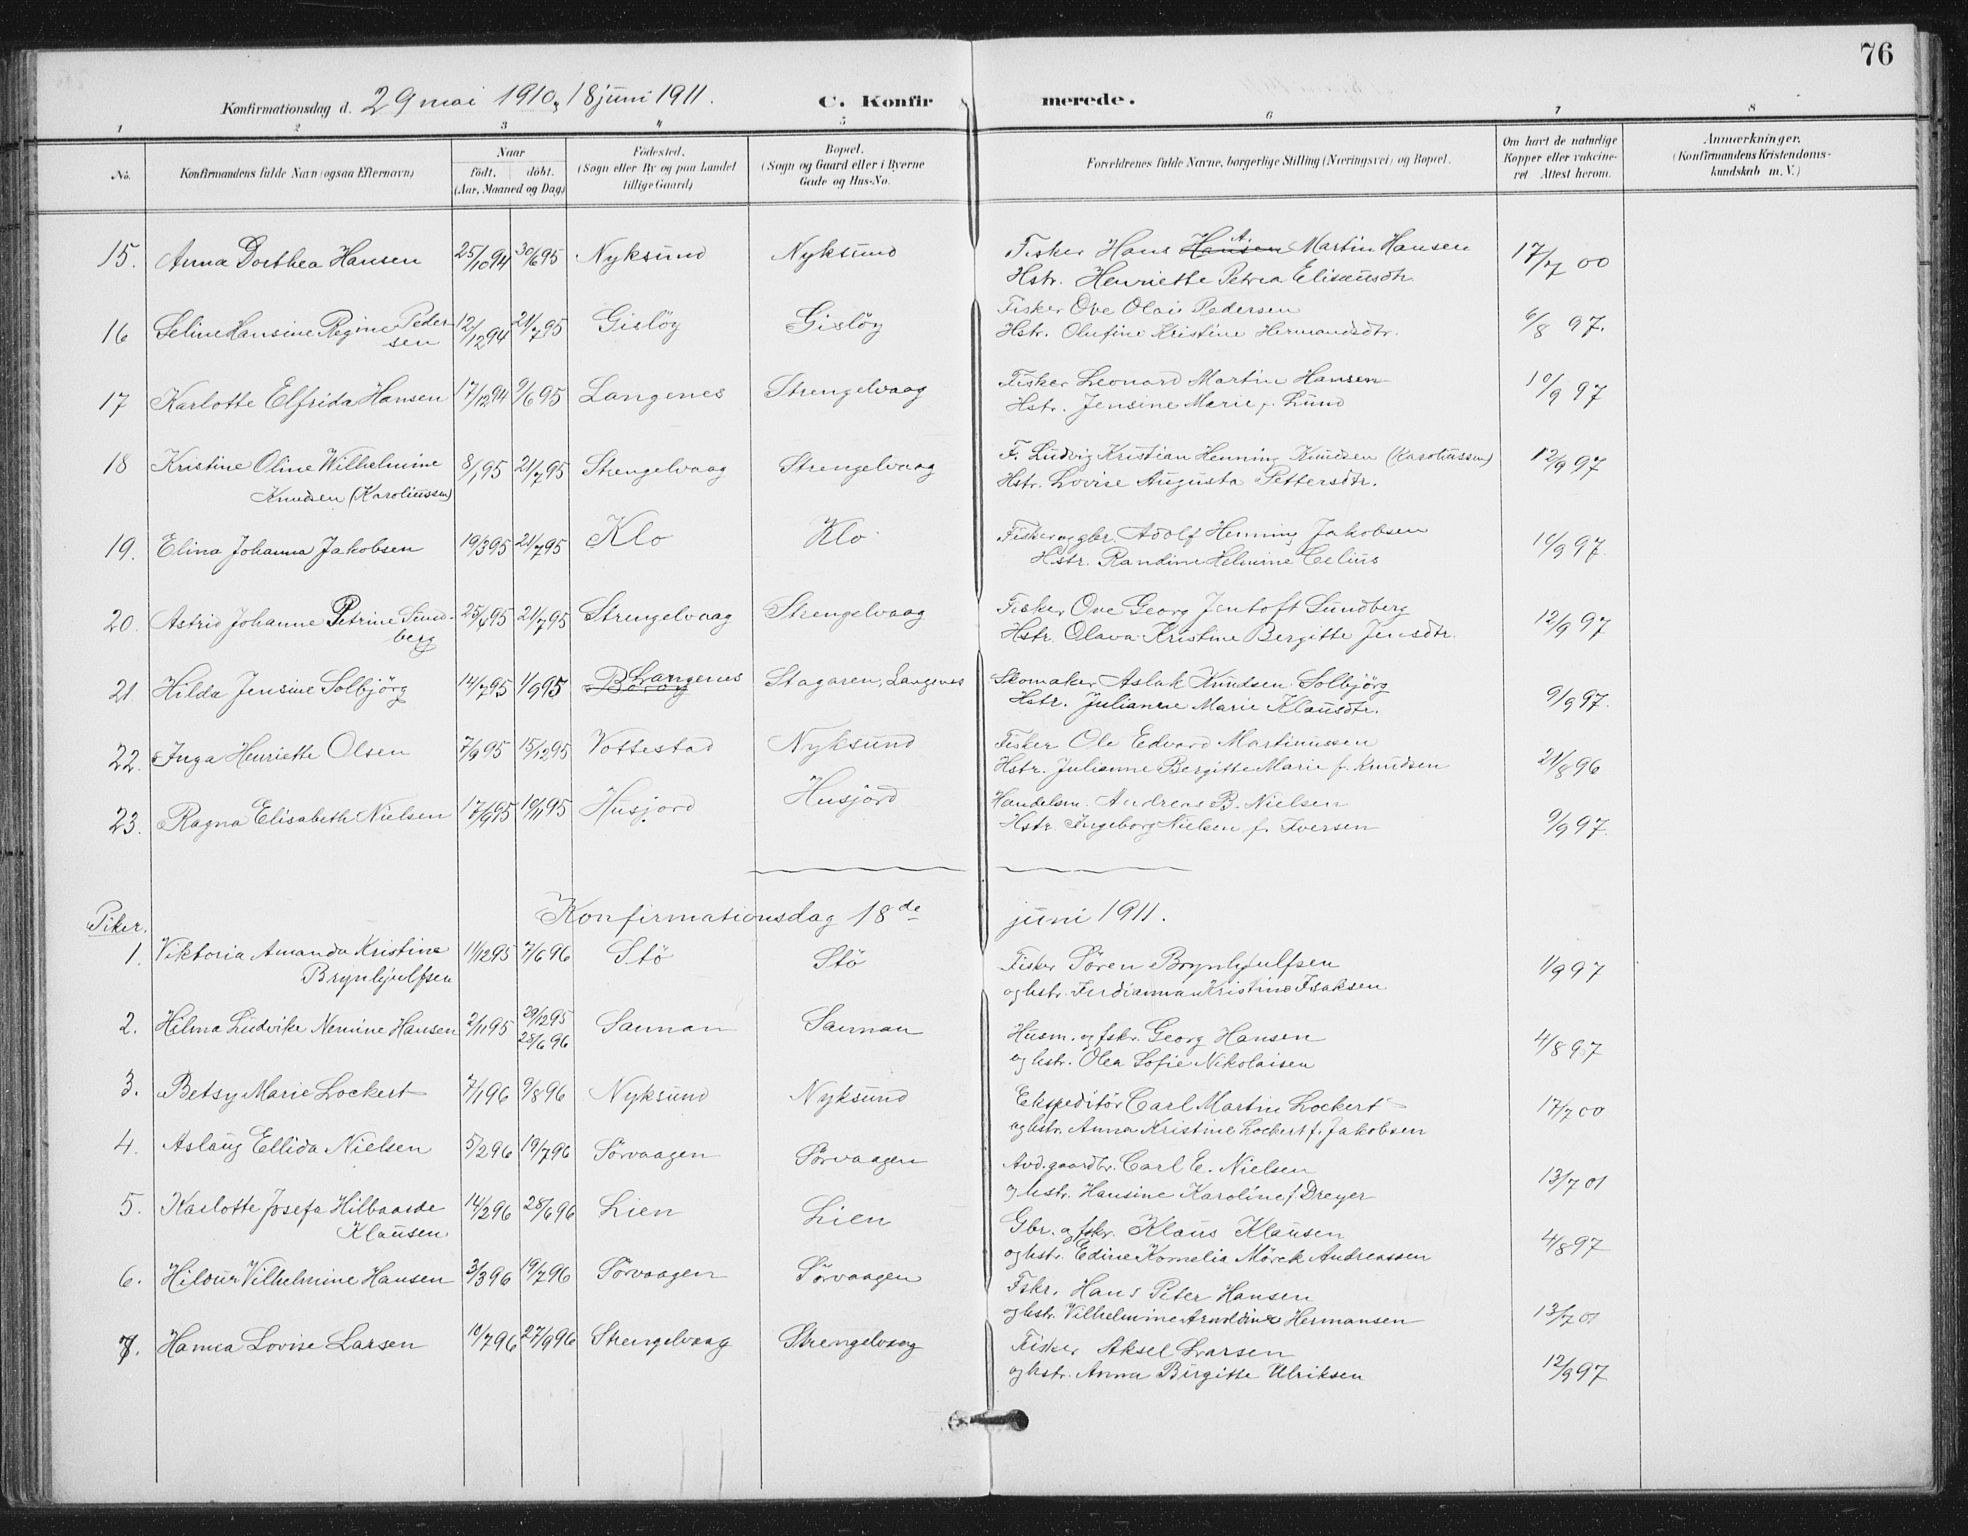 76
Konfirmationsdag d. 29 mai 1910, 18 juni 1911. C. Konfirmerede.
1 2 3 4 5 6 7 8
No. Konfirmandens fulde Navn (ogsaa Efternavn) Naar født. døbt. (Aar, Maaned og Dag) Fødested. (Sogn eller By og paa Landet tillige Gaard) Bopæl. (Sogn og Gaard eller i Byerne Gade og Hus-No. Forældrenes fulde Navne, borgerlige Stilling (Næringsvei) og Bopæl. Om havt de naturlige Kopper eller vakcineret Attest herom. Anmærkninger. (Konfirmandens Kristendomskundskab m. V.)
15. Anna Dorthea Hansen 25/10 94 30/6 95 Nyksund Nyksund Fisker Hans Hansen A. Martin Hansen 17/7 00
Hstr. Henriette Petrea Elisæusdtr.
16 Seline Hansine Regine Peder- 12/12 94 21/7 95 Gisløy Gisløy Fisker Ove Olai Pedersen 6/8 97.
sen Hstr. Olufine Kristine Hermandsdtr.
17 Karlotte Elfrida Hansen 17/12 94 9/6 95 Langenes Strengelvaag Fisker Leonard Martin Hansen 10/9 97
Hstr. Jensine Marie f. Lund
18 Kristine Oline Wilhelmine 8/1 95 21/7 95 Strengelvaag Strengelvaag F. Ludvig Kristian Henning Knudsen (Karoliussen) 12/9 97
Knudsen (Karoliussen) Hstr. Lovise Augusta Pettersdtr.
19. Elina Johanna Jakobsen 19/3 95 21/7 95 Klo Klo Fisker og gbr. Adolf Henning Jakobsen 10/9 97.
Hstr. Randine Helmine Celius
20. Astrid Johanne Petrine Sund- 25/6 95 21/7 95 Strengelvaag Strengelvaag Fisker Ove Georg Jentoft Sundberg 12/9 97
berg Hstr. Olava Kristine Bergitte Jensdtr.
21 Hilda Jensine Solbjörg 14/7 95 1/9 95 Langenes Stagaren, Langenes Skomaker Aslak Knudsen Solbjörg 9/9 97.
Hstr. Julianne Marie Klausdtr.
22. Inga Henriette Olsen 7/9 95 15/12 95 Vottestad Nyksund Fisker Ole Edvard Martinussen 21/8 96
Hstr. Julianne Bergitte Marie f. Knudsen
23. Ragna Elisabeth Nielsen 17/9 95 10/11 95 Husjord Husjord Handelsm. Andreas B. Nielsen 9/9 97.
Hstr. Ingeborg Nielsen f. Iversen
Konfirmationsdag 18de juni 1911.
Piker.
1. Viktoria Amanda Kristine 11/12 95 7/6 96 Stö Stö Fisker Sören Brynhjulfsen 1/9 97
Brynhjulfsen og hstr. Ferdianna Kristine Isaksen
2. Hilma Ludvike Nermine Hansen 2/11 95 29/12 95 28/6 96 Sauman Sauman Husm. og fskr. Georg Hansen 4/8 97
og hstr. Olea Sofie Nikolaisen
3. Betsy Marie Lockert 7/1 96 9/8 96 Nyksund Nyksund Ekspeditör Carl Martin Lockert 17/7 00
og hstr. Anna Kristine Lockert f. Jakobsen
4. Aslaug Ellida Nielsen 5/2 96 19/7 96 Sörvaagen Sörvaagen Avd. gaardbr. Carl E. Nielsen 13/7 01
og hstr. Hansine Karoline f. Dreyer
5. Karlotte Josefa Hilbaarde 14/2 96 28/6 96 Lien Lien Gbr. og fskr. Klaus Klausen 4/8 97
Klausen og hstr. Edine Kornelia Mörck Andreassen
6. Hildur Vilhelmine Hansen 3/3 96 19/7 96 Sörvaagen Sörvaagen Fskr. Hans Peter Hansen 13/7 01
og hstr. Vilhelmine Arnoldine Hermansen
7. Hanna Lovise Larsen 10/7 96 27/9 96 Strengelvaag Strengelvaag Fisker Aksel Larsen 12/9 97
og hstr. Anna Birgitte Ulriksen